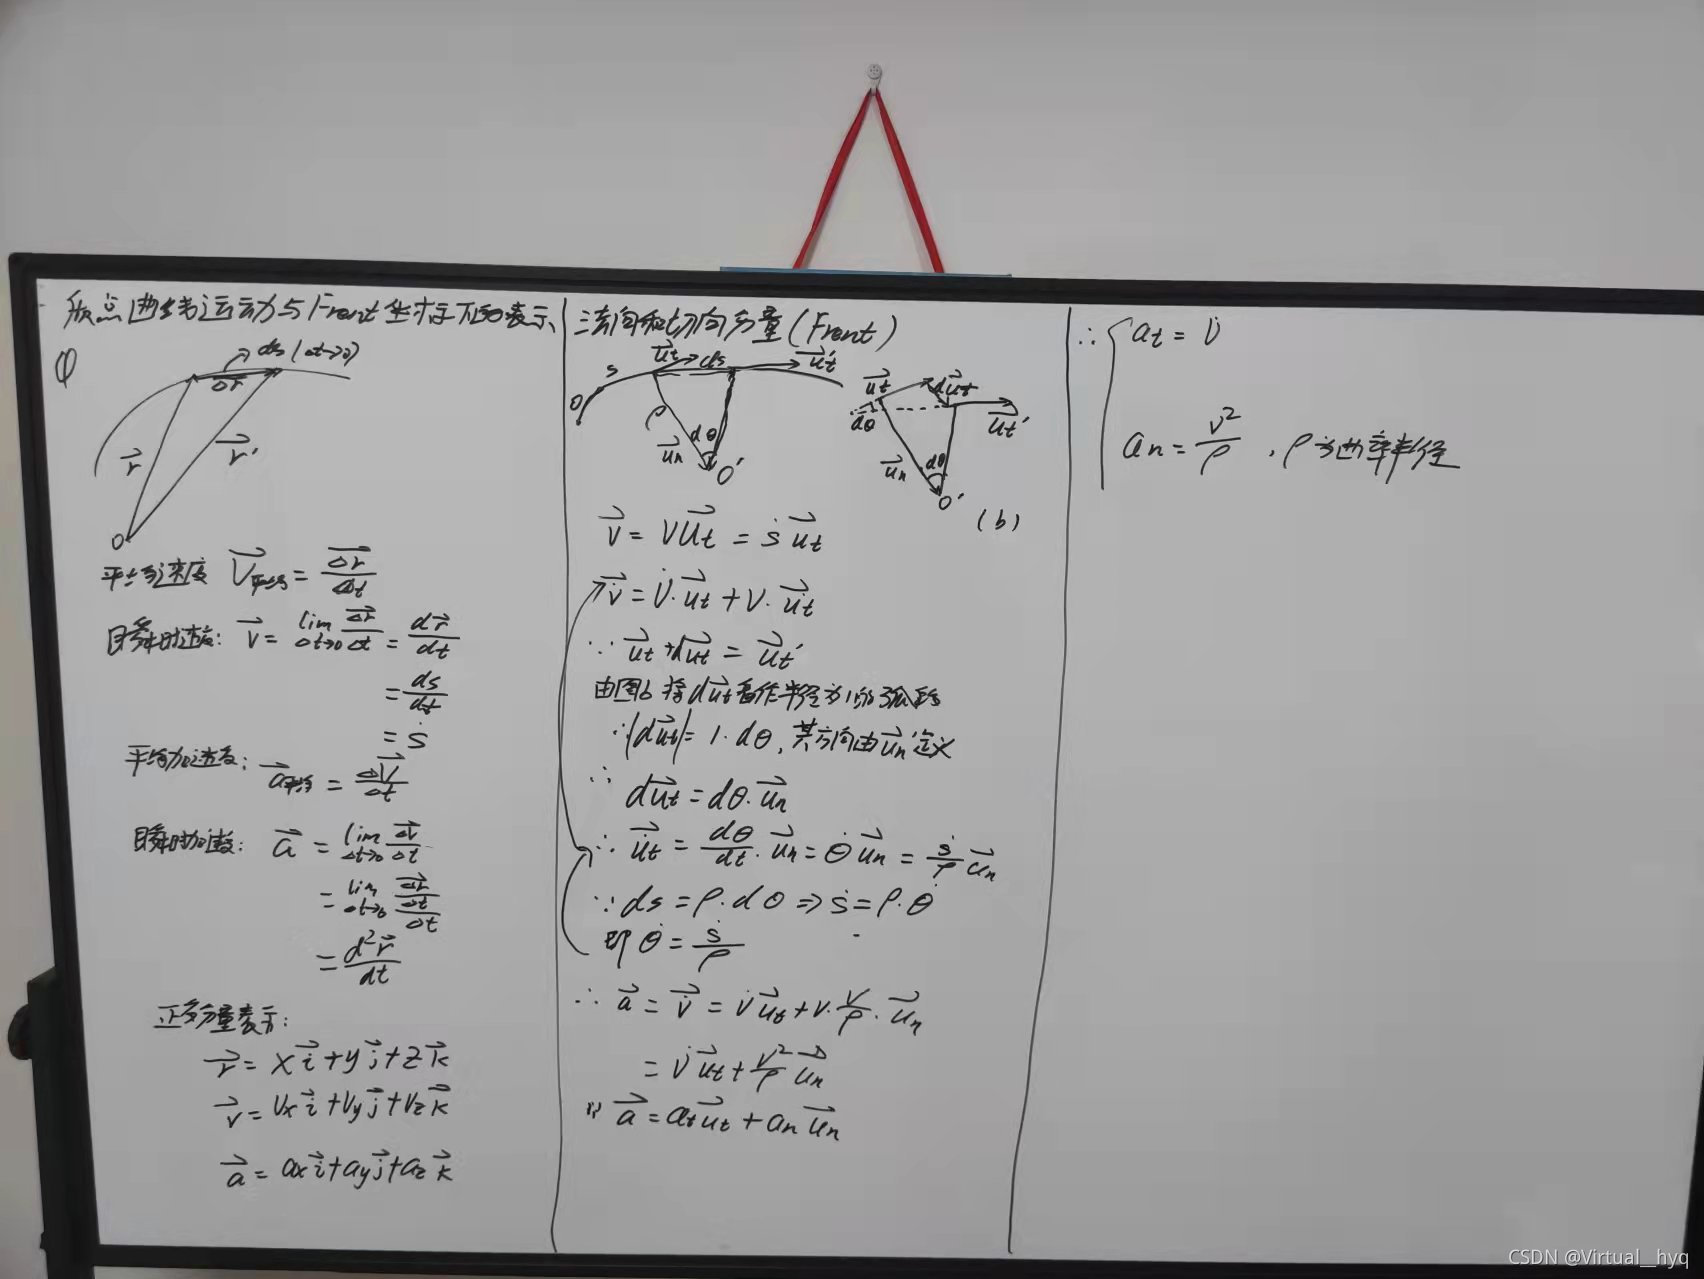 质点曲线运动与Frent坐标下的表示
①
ds (Δt→0)
Δr⃗
r⃗
r⃗'
O
平均速度 V⃗平均 = Δr⃗/Δt
瞬时速度: v⃗ = lim Δt→0 Δr⃗/Δt = dr⃗/dt
= ds/dt
= ṡ
平均加速度: a⃗平均 = ΔV⃗/Δt
瞬时加速度: a⃗ = lim Δt→0 Δv⃗/Δt
= lim Δt→0 (Δr⃗/Δt)/Δt
= d²r⃗/dt
正交分量表示:
r⃗ = x i⃗ + y j⃗ + z k⃗
v⃗ = Vx i⃗ + Vy j⃗ + Vz k⃗
a⃗ = ax i⃗ + ay j⃗ + az k⃗
法向和切向分量 (Frent)
O s u⃗t ds u⃗t'
ρ dθ
u⃗n O'
u⃗t du⃗t
dθ u⃗t'
u⃗n dθ
O'
(b)
v⃗ = V u⃗t = ṡ u⃗t
v⃗̇ = V̇·u⃗t + V·u⃗̇t
∵ u⃗t + du⃗t = u⃗t'
由图b 将du⃗t看作半径为1的弧段
∴ |du⃗t| = 1·dθ, 其方向由u⃗n定义
∴ du⃗t = dθ·u⃗n
∴ u⃗̇t = dθ/dt · u⃗n = θ̇ u⃗n = ṡ/ρ u⃗n
∵ ds = ρ·dθ ⇒ ṡ = ρ·θ̇
即 θ̇ = ṡ/ρ
∴ a⃗ = v⃗̇ = V̇ u⃗t + V·V/ρ·u⃗n
= V̇ u⃗t + V²/ρ u⃗n
∵ a⃗ = at u⃗t + an u⃗n
∴ { at = V̇
an = V²/ρ , ρ为曲率半径
CSDN @Virtual__hyq